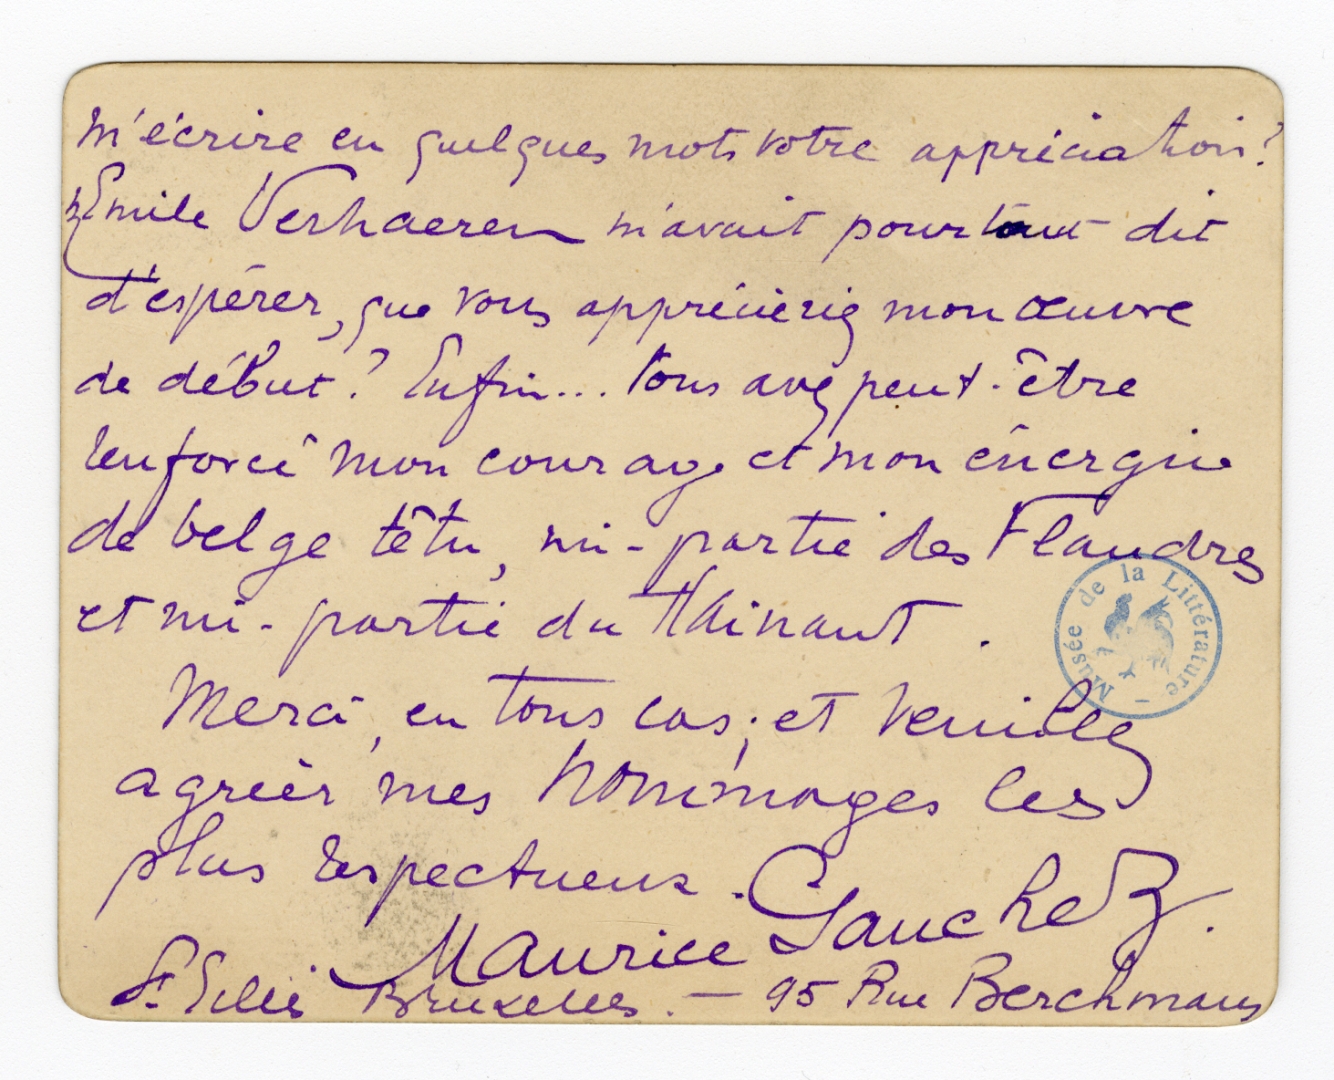 m'écrire en quelques mots votre appréciation?
Emile Verhaeren m'avait pourtant dit
d'espérer, que vous apprécieriez mon œuvre
de début? Enfin... Vous avez peut-être
renforcé mon courage et mon énergie
de belge têtu, mi-partie des Flandres
et mi-partie du Hainaut.
Musée de la Littérature
Merci, en tous cas, et veuillez
agréer mes hommages les
plus respectueux.
Maurice Gauchez.
St. Gilles Bruxelles. — 95 Rue Berchmans